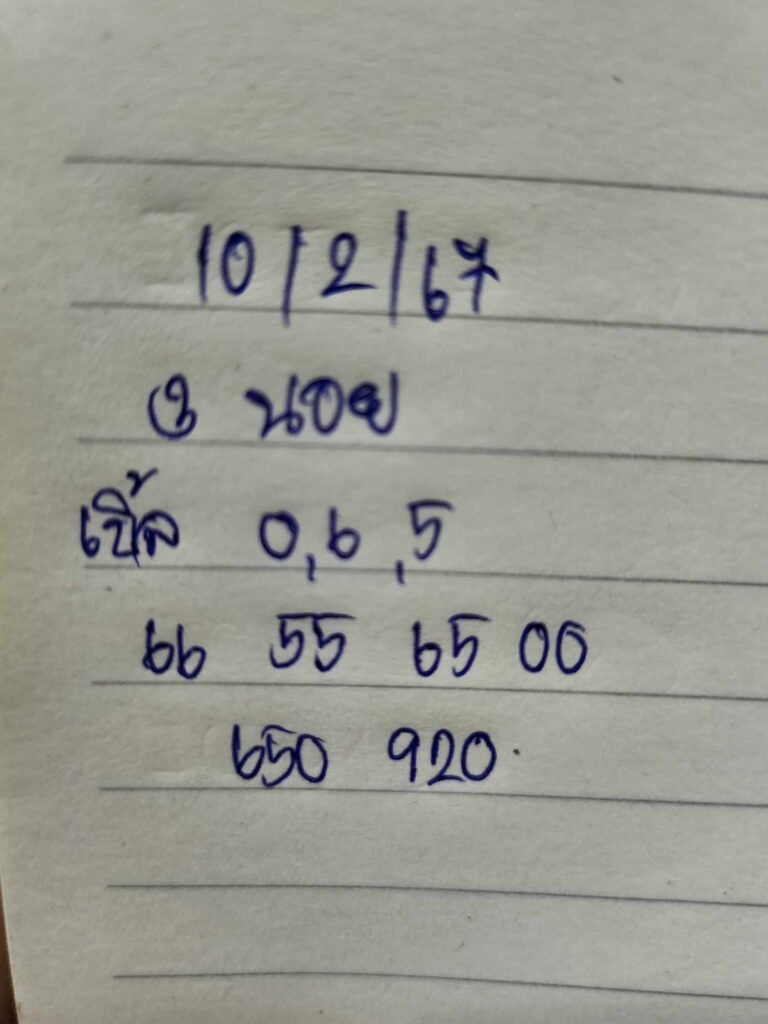 10/2/67
นอย
เบิ้ล 0,6,5
66 55 65 00
650 920